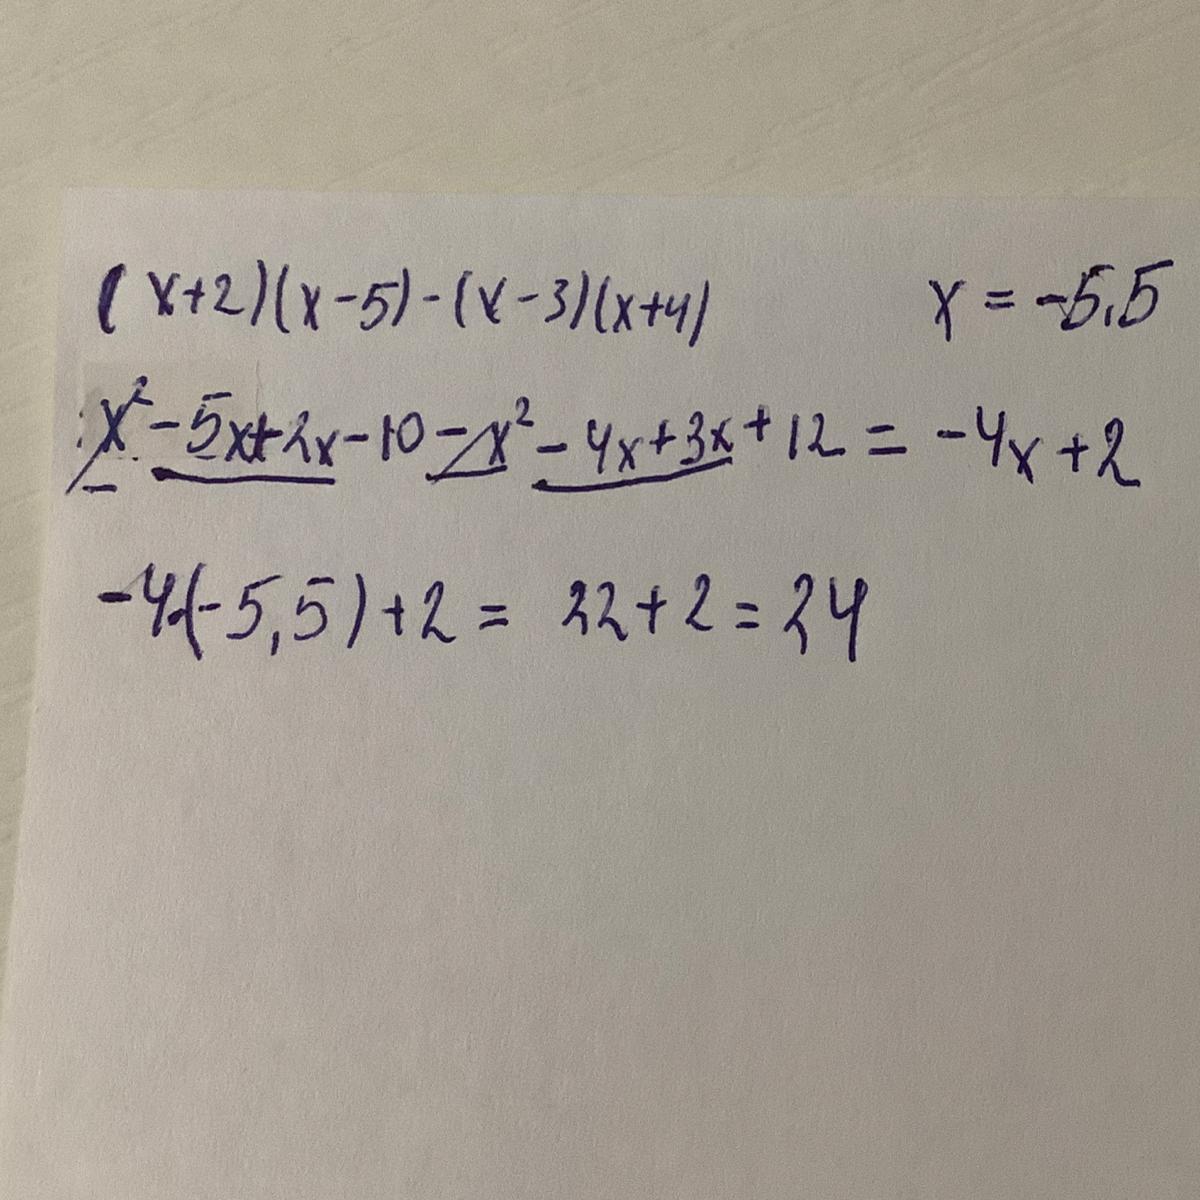 (x+2)(x-5)-(x-3)(x+4) x = -5,5
x²-5x+2x-10-x²-4x+3x+12 = -4x+2
-4·(-5,5)+2 = 22+2=24